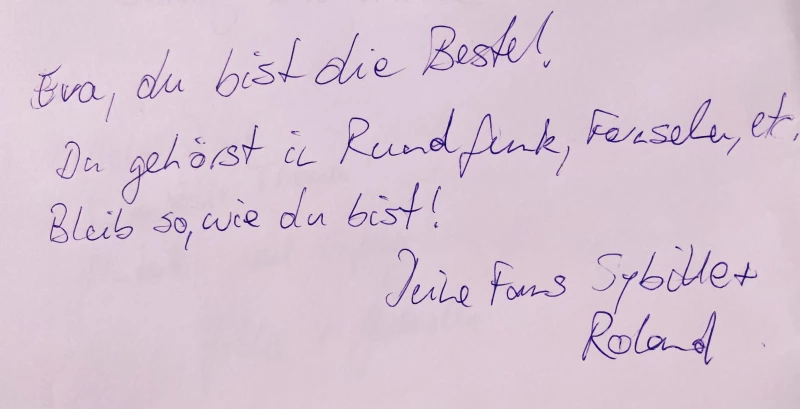 Eva, du bist die Beste!
Du gehörst in Rundfunk, Fernsehen, etc.
Bleib so, wie du bist!
Deine Fans Sybille +
Roland